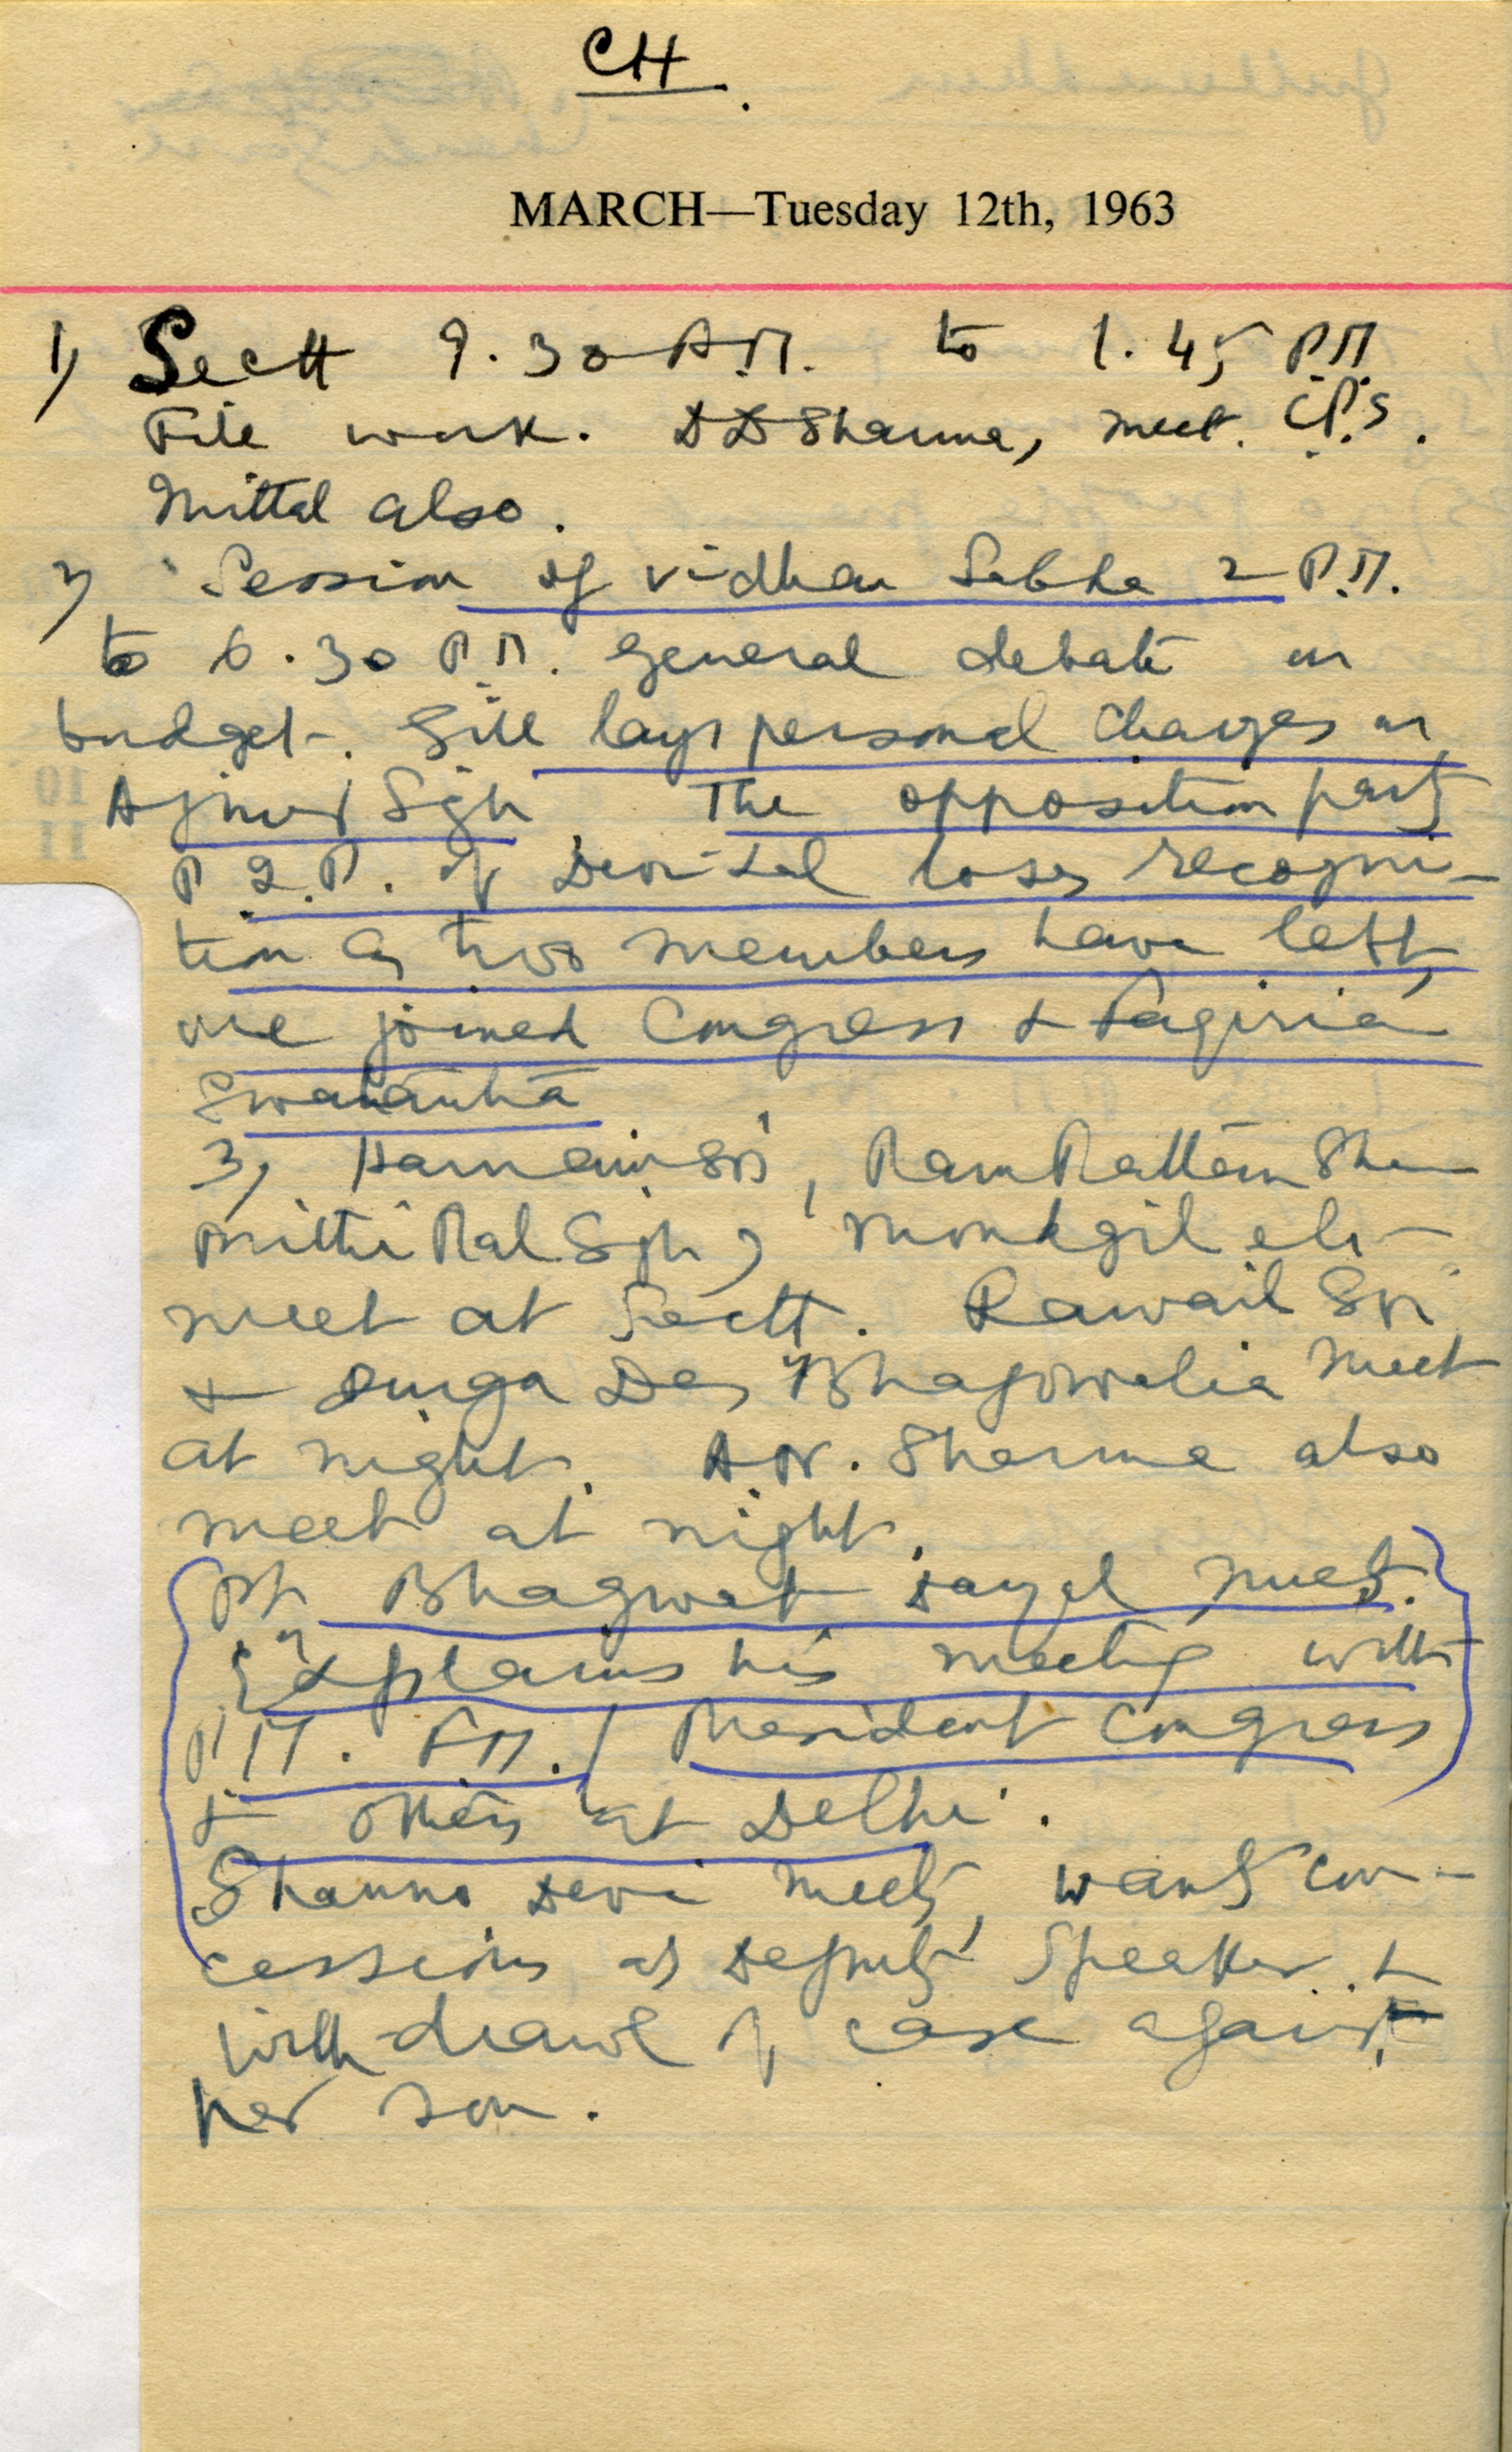 CH.
MARCH—Tuesday 12th, 1963
1) Sectt 9.30 A.M. to 1.45 P.M.
File work. D D Sharma, meet. C.P.S.
Mittal also.
2) Session of Vidhan Sabha 2 P.M.
to 6.30 P.M. General debate on
budget. Gill lays personal charges on
Ajmer Sgh The opposition party
of Devi Lal loses recogni-
tion as two members have left,
one joined Congress & Faqiria
Swatantra
3) Harnam , Ram Rattan
Prithi Pal Sgh,
meet at Sectt. Rawail
& Durga Das Bhagowalia meet
at night. A.N. Sharma also
meet at night.
Pt. Bhagwat Dayal meets.
Explains his meeting with
P.M. F.M. / President Congress
& others at Delhi.
Shanno Devi meets, wants con-
cessions as Deputy Speaker &
withdrawl of case against
her son.